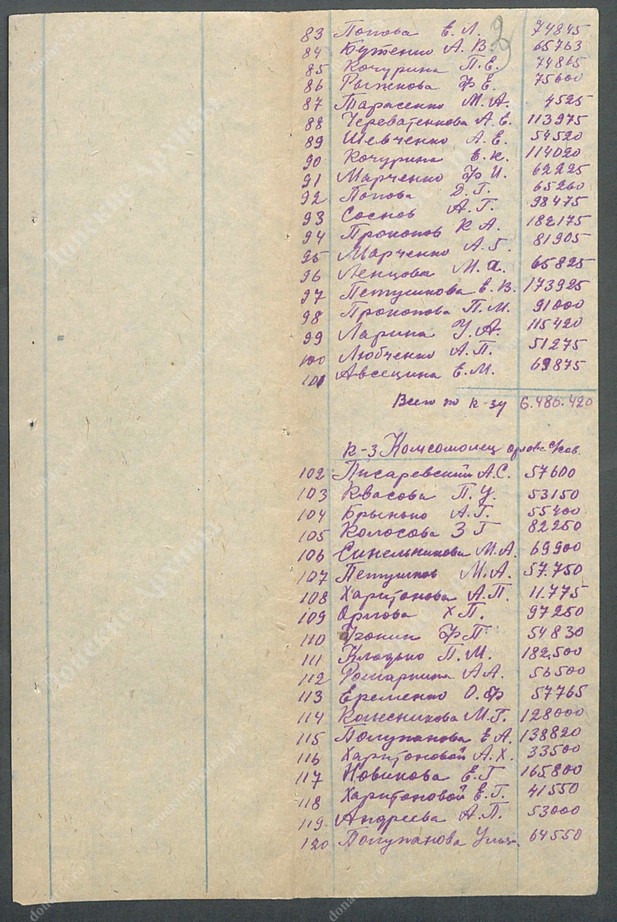 2
83 Попова Е. Л. 74845
84 Бутенко А. В. 65763
85 Кочурина П. Е. 74865
86 Рыжкова Ф. Е. 75600
87 Тарасенко М. А. 4525
88 Череватенкова А. Е. 113975
89 Шевченко А. Е. 54520
90 Кочурина Е. К. 114020
91 Марченко Ф. И. 62225
92 Попова Д. Г. 65260
93 Соснов А. Г. 98475
94 Прокопов К А. 182175
95 Марченко А. Г. 81905
96 Ленцова М. А. 65825
97 Петушкова Е. В. 173925
98 Прокопова П. М. 91000
99 Ларина У. А. 115420
100 Любченко А. П. 51275
101 Авсецина Е. М. 69875
Всего по к-зу 6.486.420
к-з Комсомолец
102 Писаревский А. С. 57600
103 Квасова П. У. 53150
104 Брынько А. Г. 55400
105 Колосова З Г 82250
106 Синельникова М. А. 69900
107 Петушков М. А. 57.750
108 Харитонова А. П. 11.775
109 Орлова Х П. 97250
110 Ф П 54830
111 Клоцько П. М. 182,500
112 А А. 56500
113 Еременко О. Ф 57765
114 Колесникова М. Г. 128000
115 Полупанова Е А 138820
116 Харитоновой А. Х. 33500
117 Новикова Е. Г 165800
118 Харитоновой Е. Г. 41550
119. Андреева А. П. 53000
120 Полупанова 64550